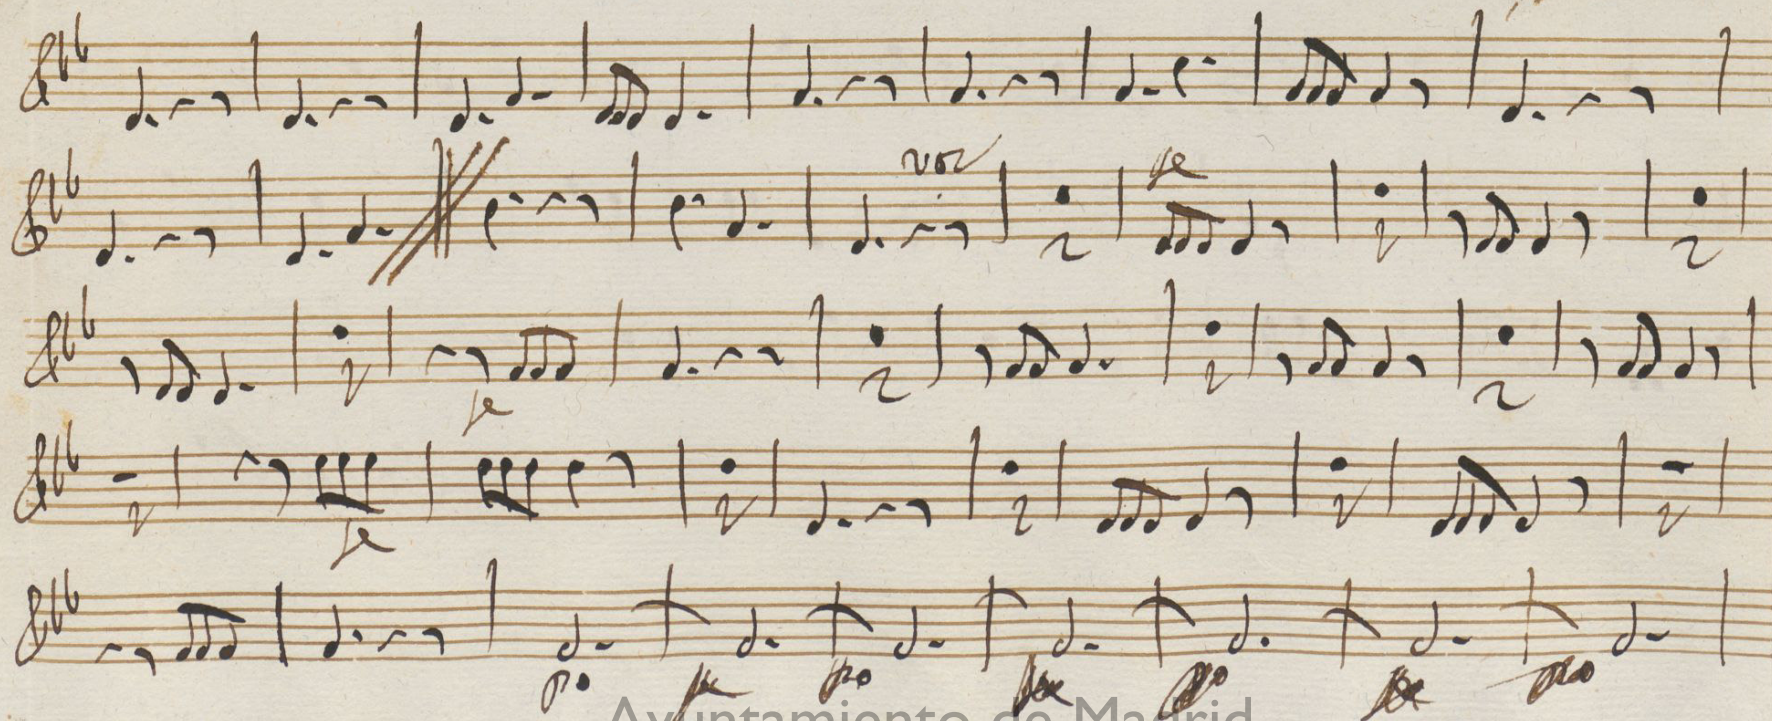 voz fe
fe
fe
po fe po fe po fe po
Ayuntamiento de Madrid